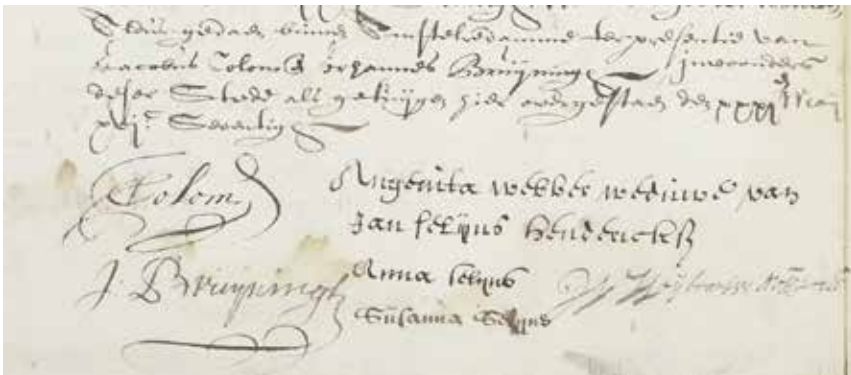 Aldus gedaen binnen Amstelredamme ter presentie van
Jacobus Colom & Johannes Bruijningh inwoonders
deser Stede als getuijgen hier over gestaen den xxxi.en Meij
xvj.c Seventigh
Colom
Angenita webber weduwe van
Jan selijns hendericksz
J. Bruijningh
Anna selijns
Susanna Selijns